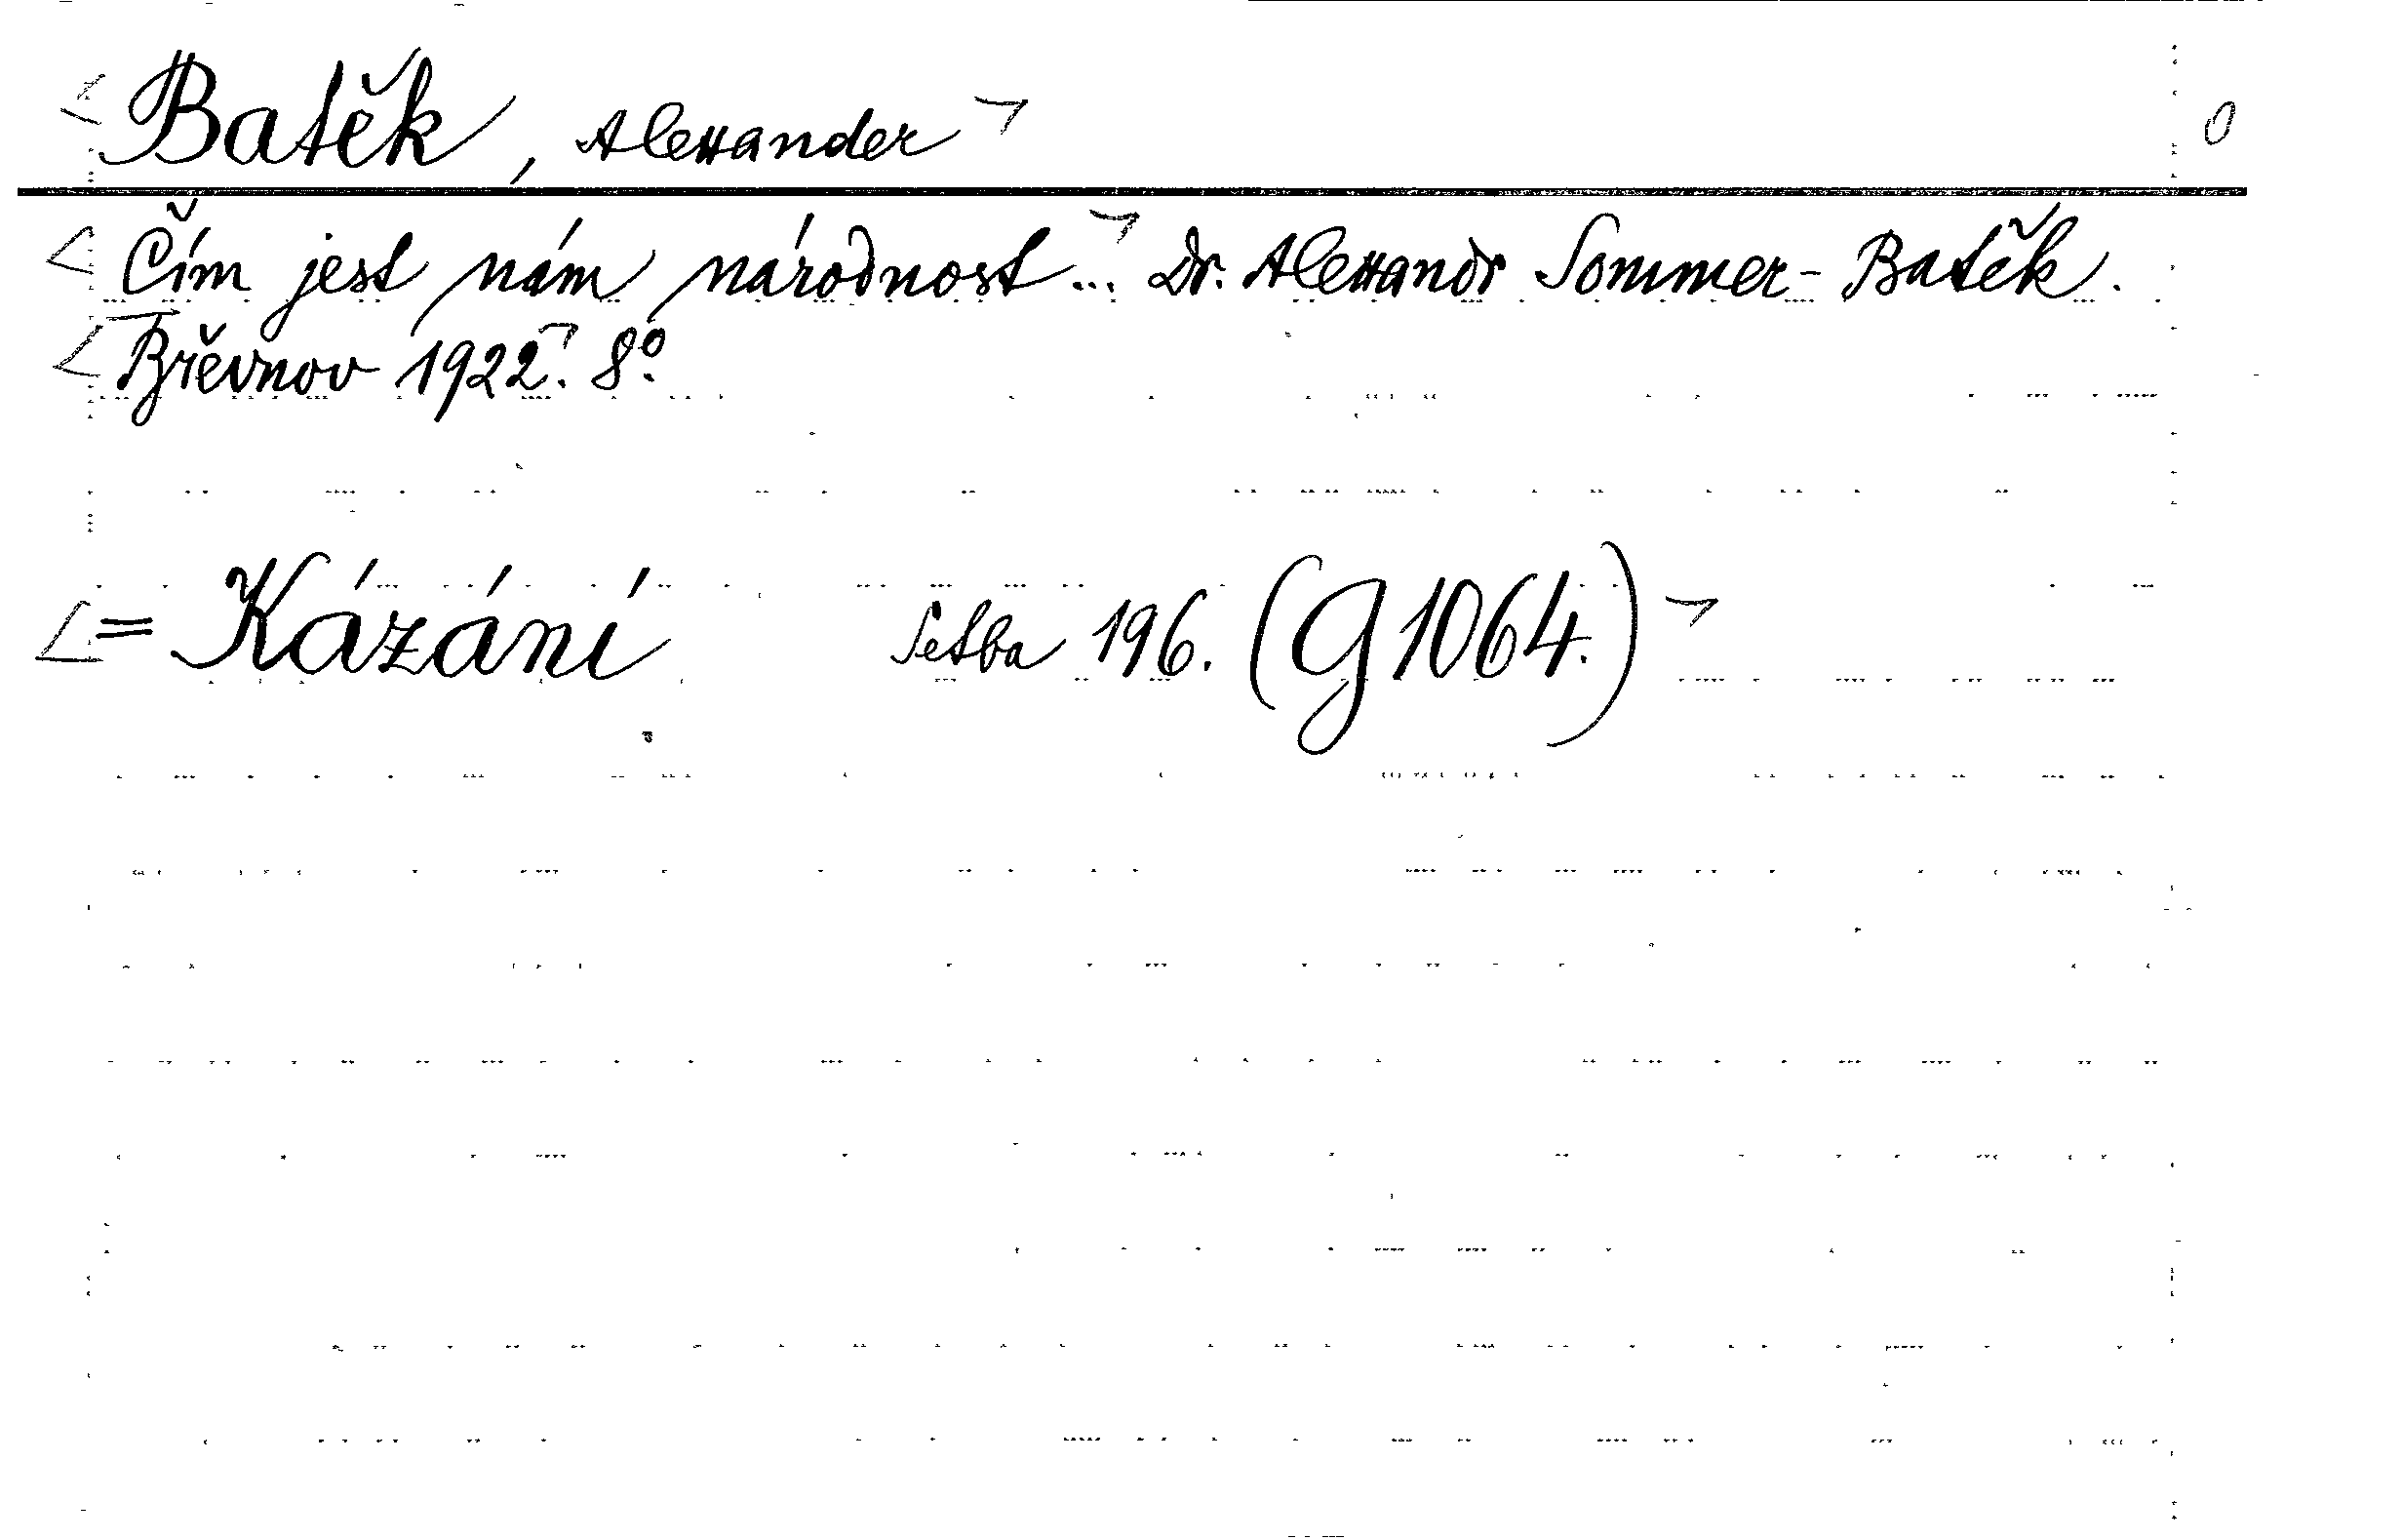 Batěk, Alexander 0
Čím jest nám národnost... Dr. Alexandr Sommer-Batěk.
Břevnov 1922. 8°.
= Kázání Setba 196. (G 1064.)